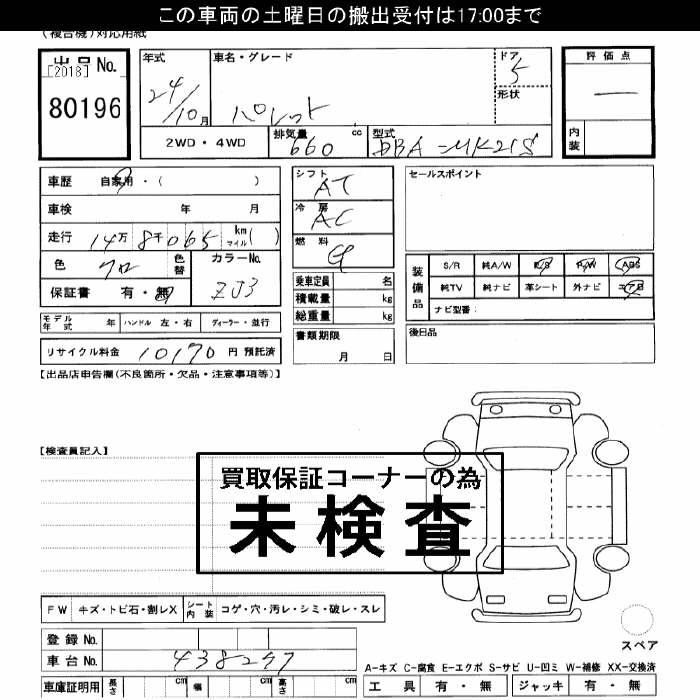 この車両の土曜日の搬出受付は17:00まで
(複合機)対応用紙
出品 No.
[2018]
80196
年式
24/10月
車名・グレード
パレット
ドア
5
形状
評価点
—
内装
2WD・4WD
排気量
660 cc
型式
DBA-MK21S
車歴 自家用・( )
車検 年 月
走行 14万8千065 km マイル( )
色 クロ 色替
カラーNo.
ZJ3
保証書 有・無
シフト
AT
冷房
AC
燃料
G
乗車定員 名
積載量 kg
総重量 kg
書類期限
月 日
セールスポイント
装備品
S/R 純A/W P/S P/W ABS
純TV 純ナビ 革シート 外ナビ エアB
ナビ型番:
後日品
モデル年式 年 ハンドル 左・右 ディーラー・並行
リサイクル料金 10170 円 預託済
【出品店申告欄(不良箇所・欠品・注意事項等)】
【検査員記入】
買取保証コーナーの為
未検査
FW キズ・トビ石・割レX シート内装 コゲ・穴・汚レ・シミ・破レ・スレ
登録 No.
車台 No. 438247
スペア
A-キズ C-腐食 E-エクボ S-サビ U-凹ミ W-補修 XX-交換済
車庫証明用 長さ cm 幅 cm 高さ cm
工具 有・無 ジャッキ 有・無